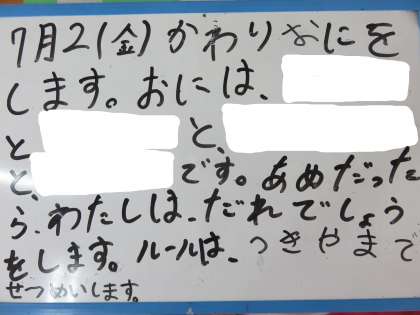 7月2(金)かわりおにを
します。おには、
と          と、
と、          です。あめだった
ら、わたしは、だれでしょう
をします。ルールは、つきやまで
せつめいします。